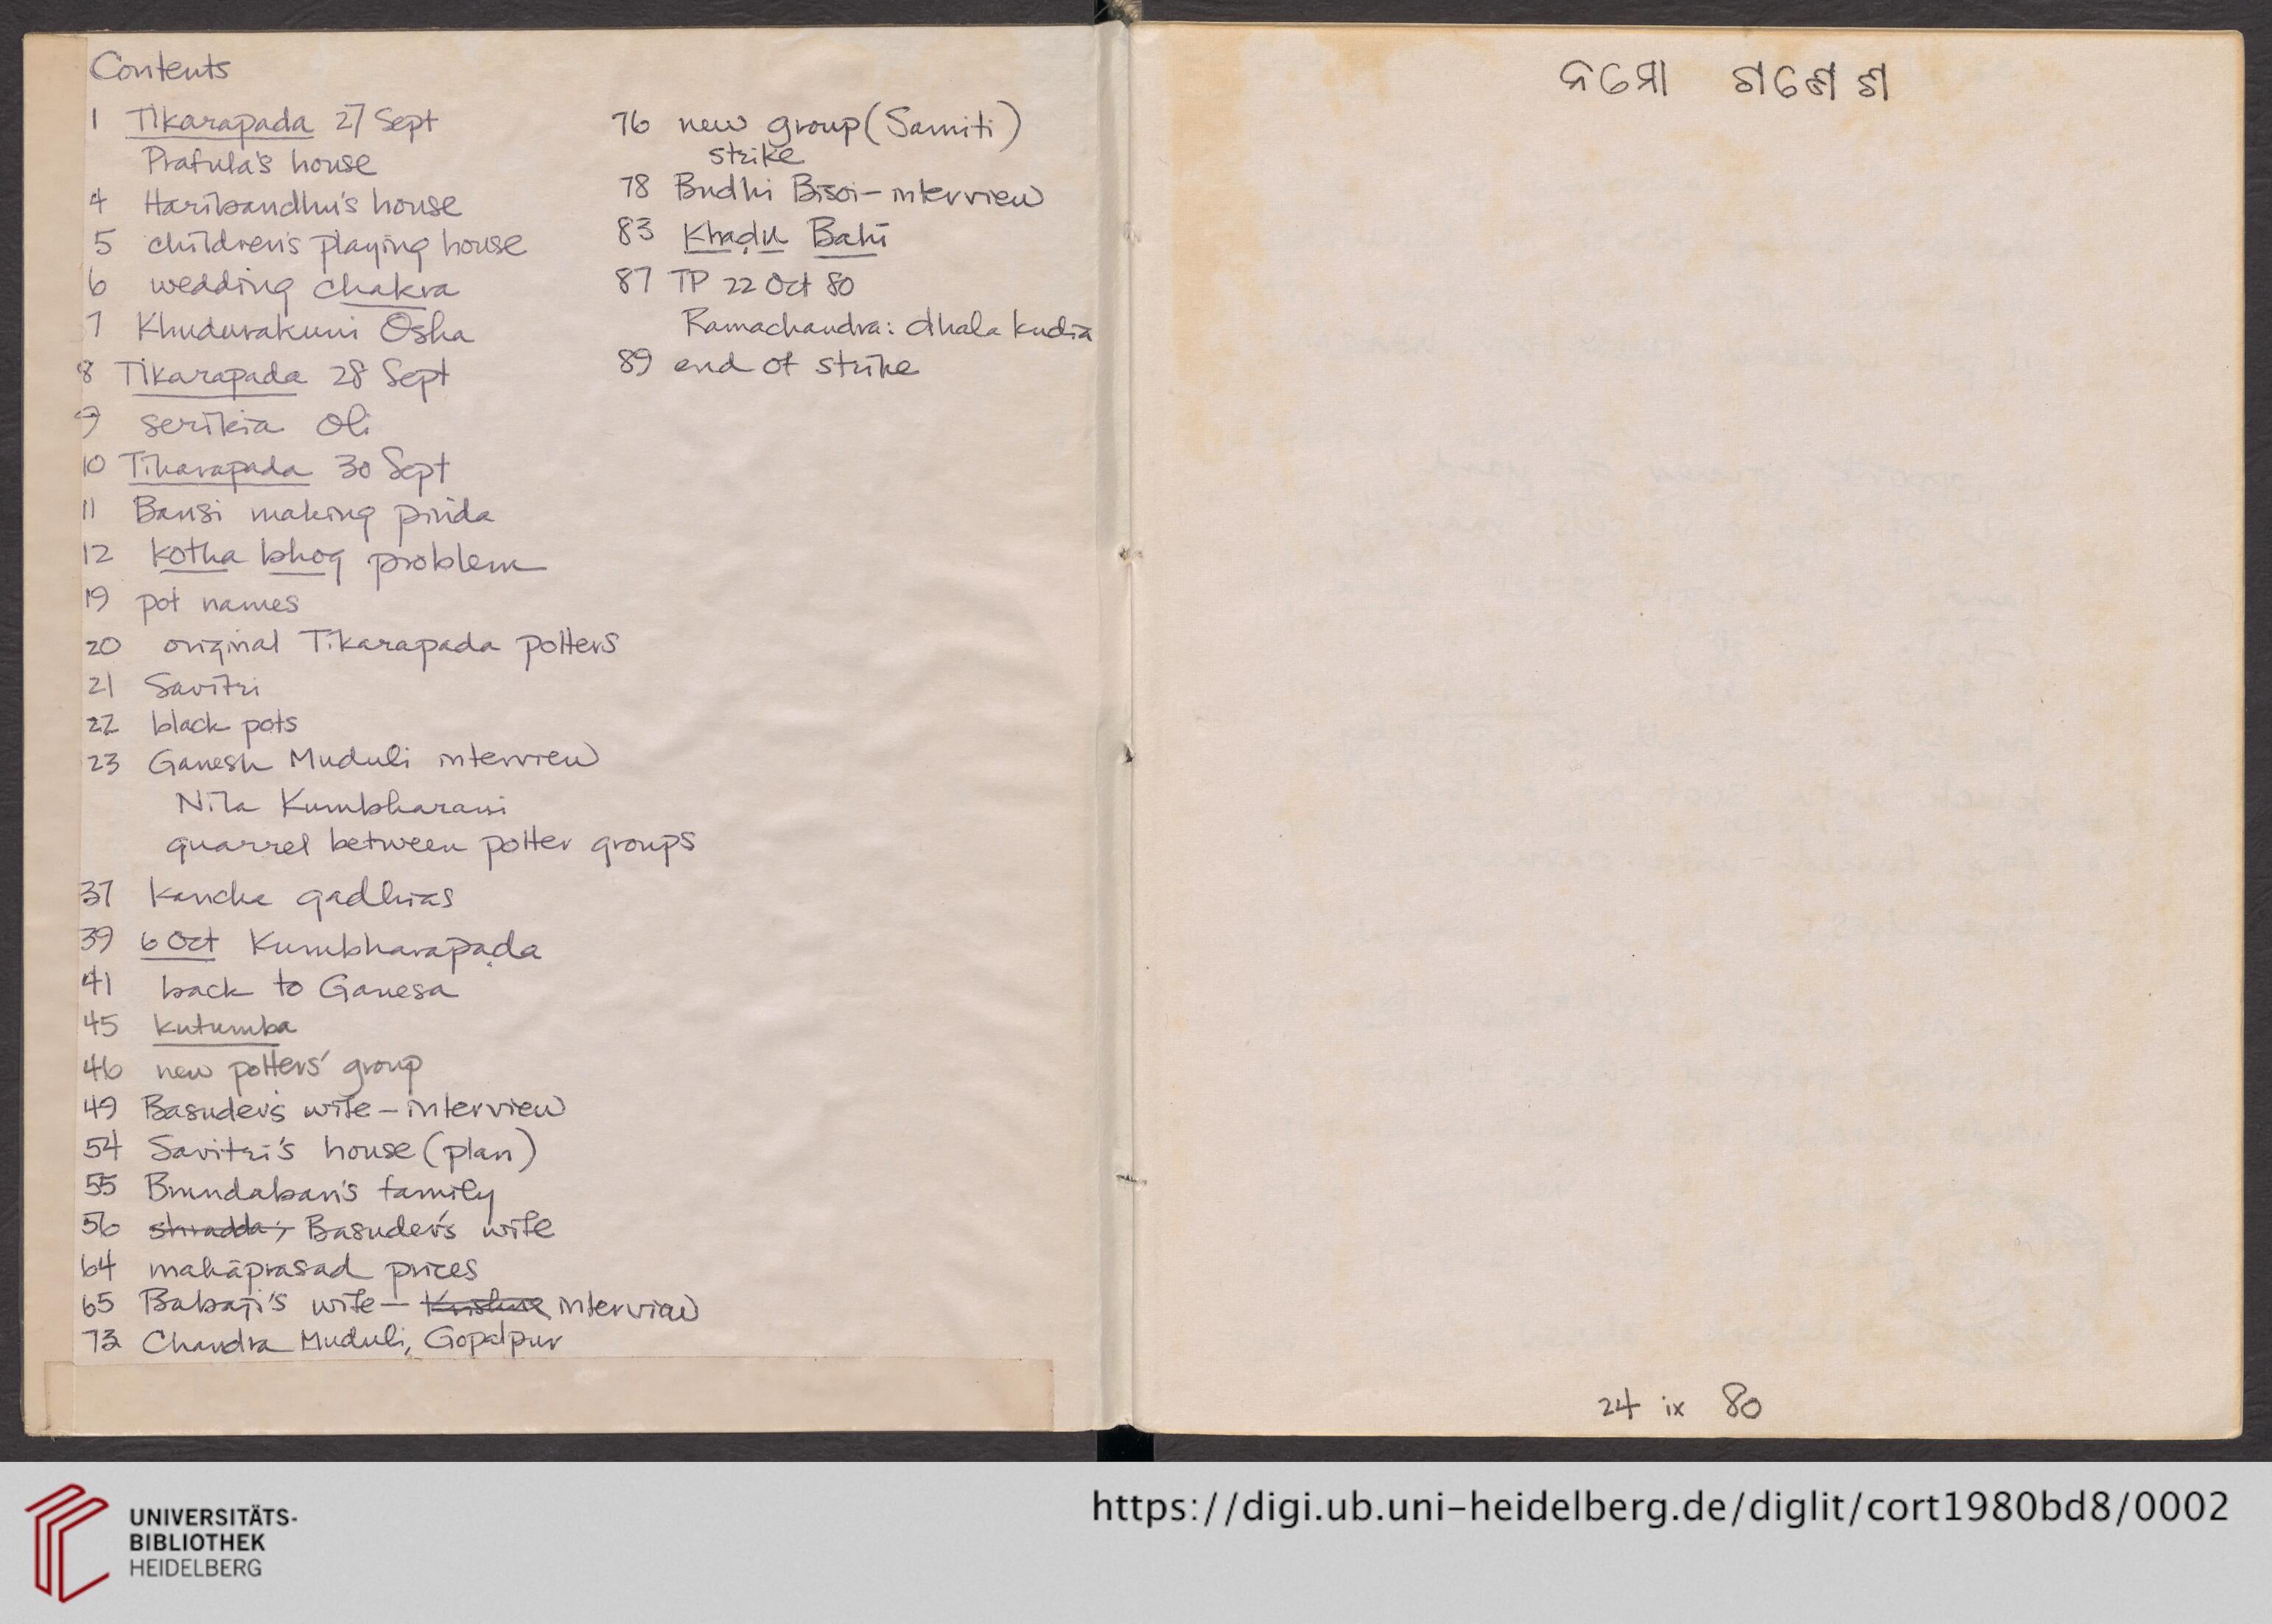 Contents
1 Tikarapada 27 Sept
Prafula's house
4 Haribandhu's house
5 children's playing house
6 wedding chakra
7 Khudurakuni Osha
8 Tikarapada 28 Sept
9 serikia oli
10 Tikarapada 30 Sept
11 Bansi making pinda
12 kotha bhog problem
19 pot names
20 original Tikarapada potters
21 Savitri
22 black pots
23 Ganesh Muduli interview
Nila Kumbharani
quarrel between potter groups
37 kancha gadhias
39 6 Oct Kumbharapaḍa
41 back to Ganesa
45 kutumba
46 new potters' group
49 Basudev's wife – interview
54 Savitri's house (plan)
55 Brundaban's family
56 shradda, Basudev's wife
64 mahāprasad prices
65 Babaji's wife – Krishna interview
73 Chandra Muduli, Gopalpur
76 new group (Samiti)
strike
78 Budhi Bisoi – interview
83 Khaḍu Bahi
87 TP 22 Oct 80
Ramachandra: dhala kudia
89 end of strike
ନମୋ ଗଣେଶ
24 ix 80
UNIVERSITÄTS-
BIBLIOTHEK
HEIDELBERG
https://digi.ub.uni-heidelberg.de/diglit/cort1980bd8/0002